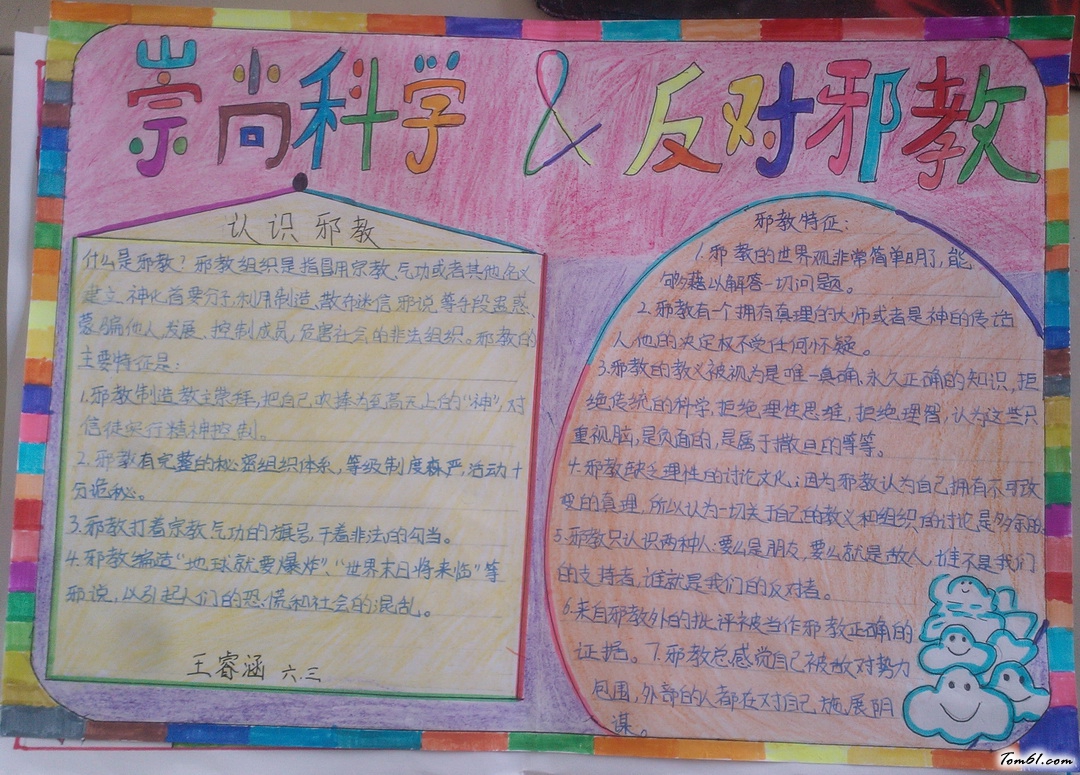 崇尚科学 & 反对邪教
认识邪教
什么是邪教？邪教组织是指冒用宗教、气功或者其他名义
建立、神化首要分子,利用制造、散布迷信邪说等手段蛊惑、
蒙骗他人,发展、控制成员,危害社会的非法组织。邪教的
主要特征是:
1.邪教制造教主崇拜,把自己吹捧为至高天上的“神”,对
信徒实行精神控制。
2.邪教有完整的秘密组织体系,等级制度森严,活动十
分诡秘。
3.邪教打着宗教气功的旗号,干着非法的勾当。
4.邪教编造“地球就要爆炸”、“世界末日将来临”等
邪说,以引起人们的恐慌和社会的混乱。
王睿涵 六.三
邪教特征:
1.邪教的世界观非常简单明了,能
够藉以解答一切问题。
2.邪教有一个拥有真理的大师或者是神的传话
人,他的决定权不受任何怀疑。
3.邪教的教义被视为是唯一真确、永久正确的知识,拒
绝传统的科学,拒绝理性思维,拒绝理智,认为这些只
重视脑,是负面的,是属于撒旦的等等。
4.邪教缺乏理性的讨论文化;因为邪教认为自己拥有不可改
变的真理,所以认为一切关于自己的教义和组织的讨论是多余的.
5.邪教只认识两种人:要么是朋友,要么就是敌人,谁不是我们
的支持者,谁就是我们的反对者。
6.来自邪教外的批评被当作邪教正确的
证据。7.邪教总感觉自己被敌对势力
包围,外部的人都在对自己施展阴
谋。
Tom61.com